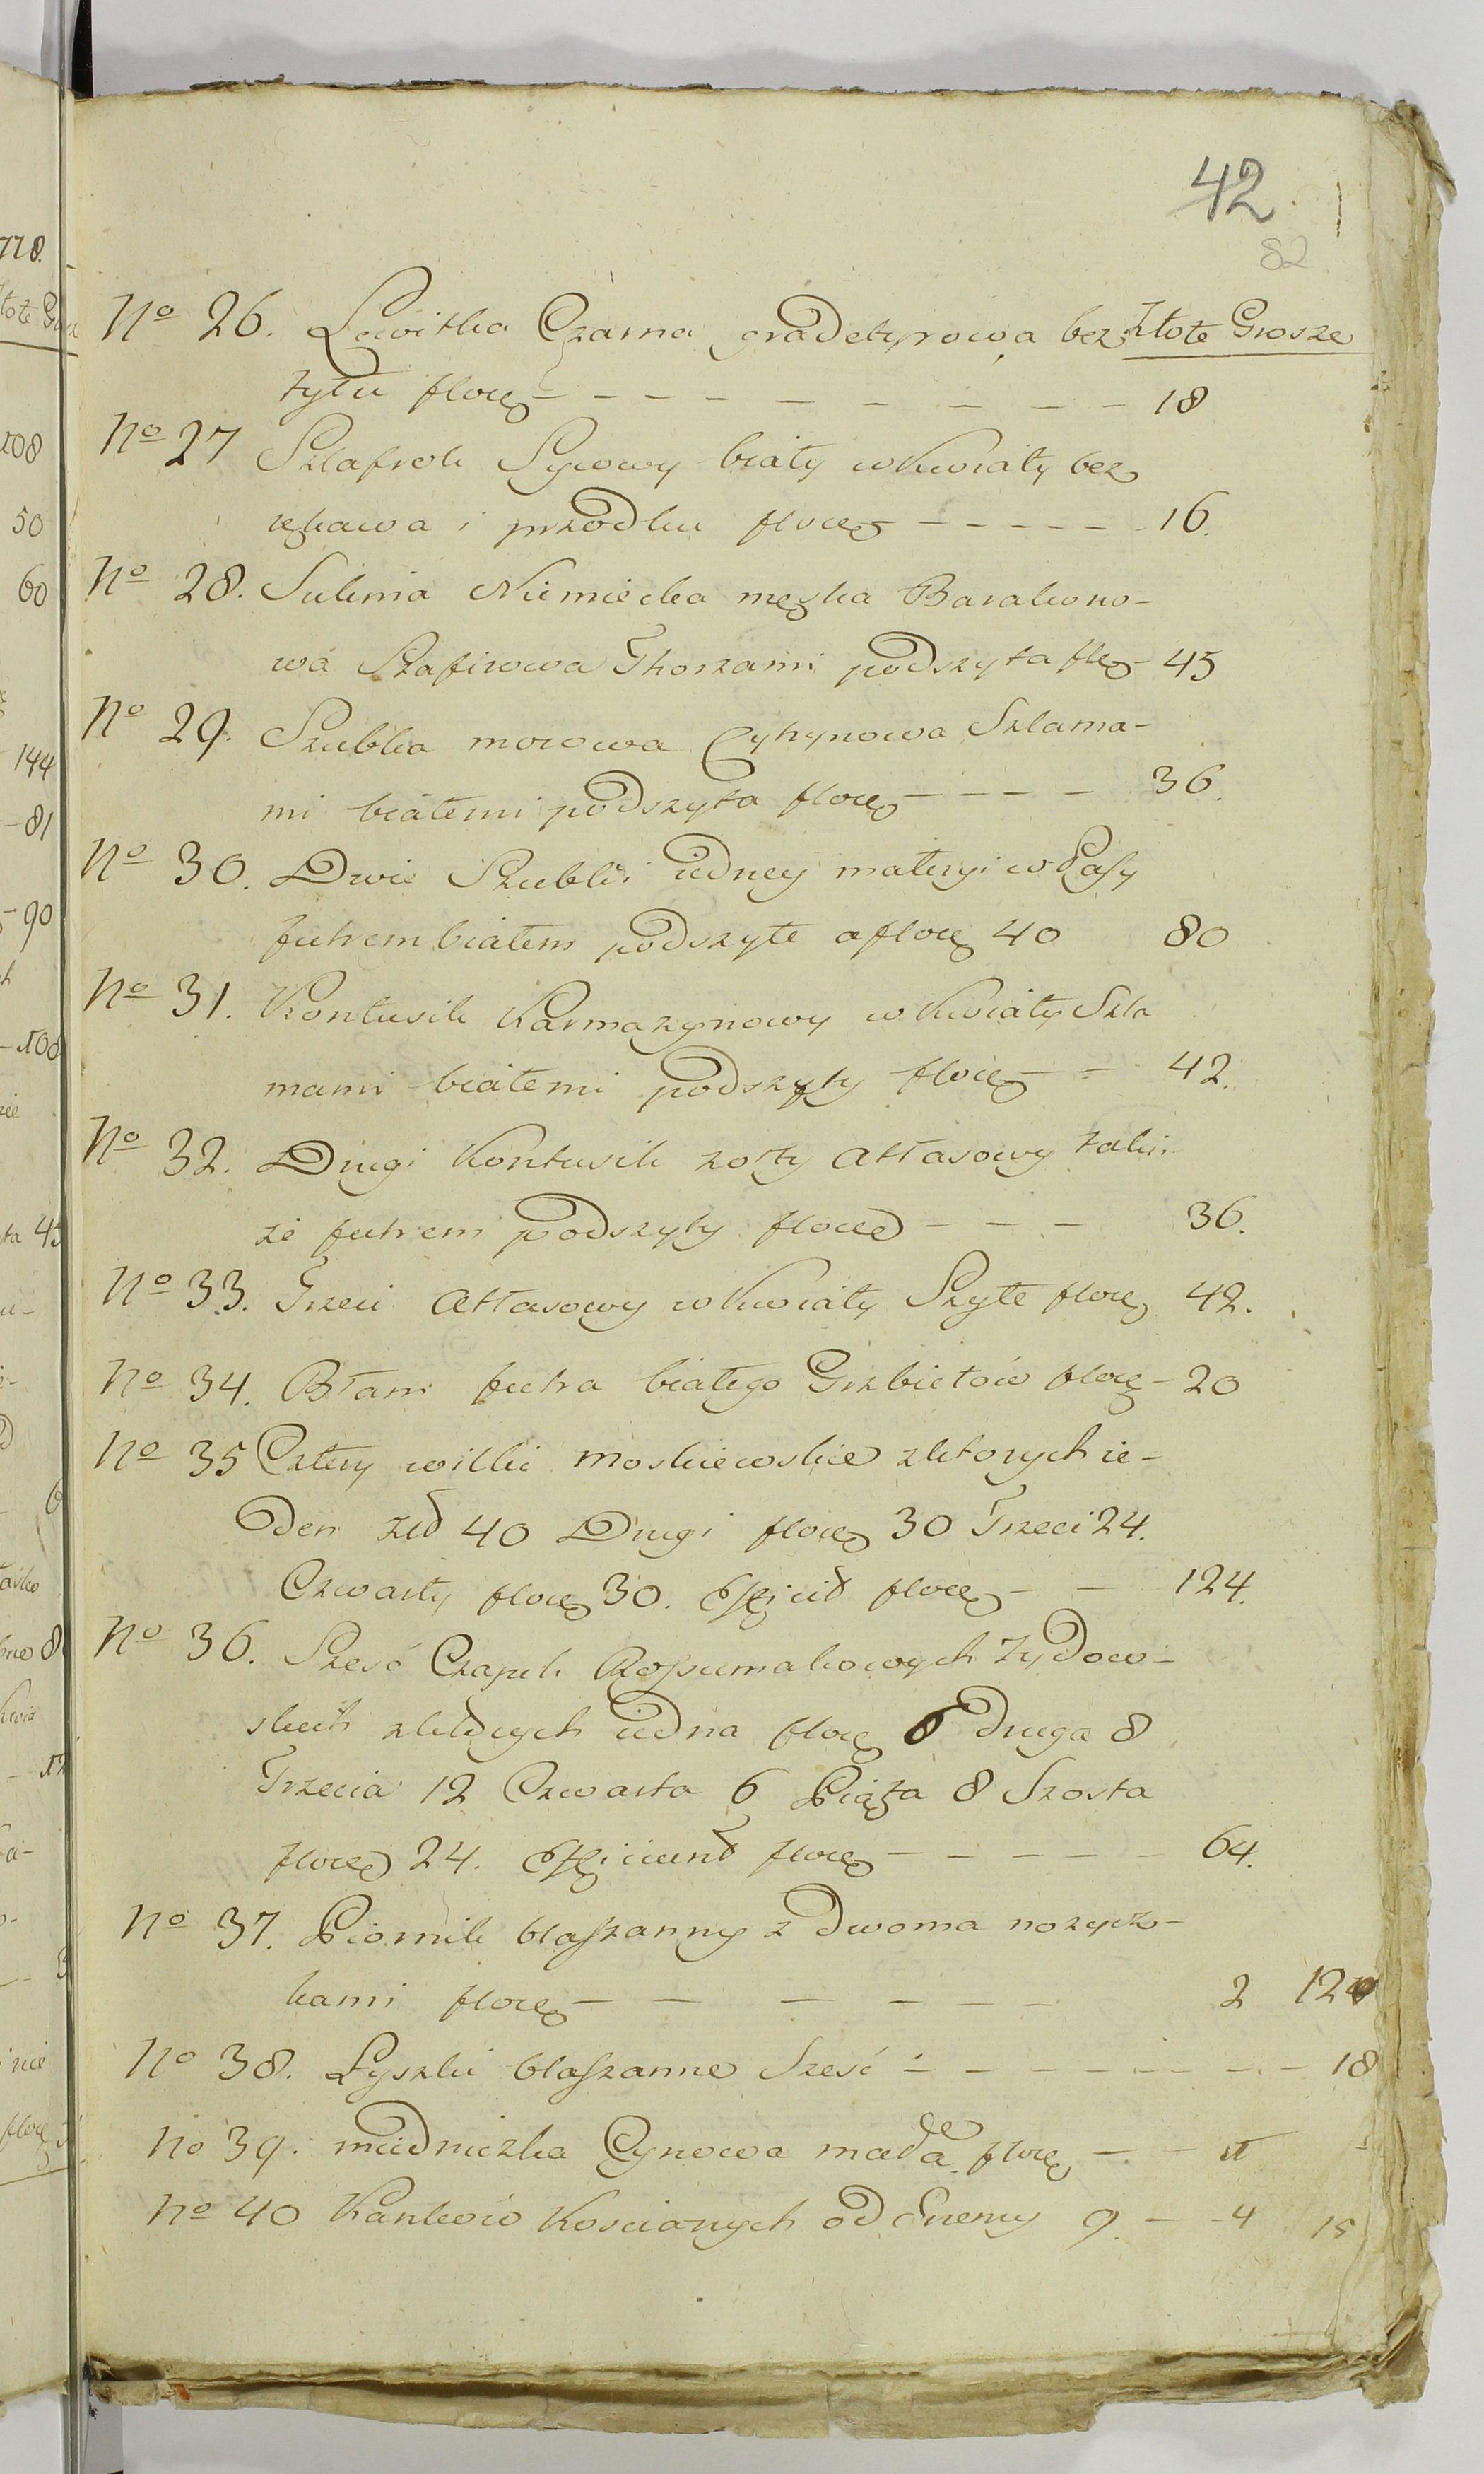 42
82
No 26. Lewitka Czarna gradetyrowa bez Złote Grosze
tyłu florę 18
No 27 Szlafrok Sycowy biały w Kwiaty bez
rękawa i przodku florę 16.
No 28. Suknia Niemiecka męzka Barakono-
wa Szafirowa Thorzami podszyta flrę 45
No 29. Szubka morowa Cytrynowa Szlama-
mi białemi podszyta florę 36.
No 30. Dwie Szubki iedney materyi w Pasy
futrem białem podszyte a florę 40 80
No 31. Kontusik Karmazynowy w Kwiaty Szla
mami białemi podszyty florę 42.
No 32. Drugi Kontusik zołty Atłasowy taki-
że futrem podszyty florę 36.
No 33. Trzeci Atłasowy w Kwiaty Szyte florę 42.
No 34. Błam futra białego Grzbietów florę 20
No 35 Cztery wilki moskiewskie z ktorych ie-
den zł 40 Drugi florę 30 Trzeci 24.
Czwarty florę 30. Efficit florę 124.
No 36. Sześć Czapek Rossumakowych Żydow-
skich z których iedna florę 6 druga 8
Trzecia 12 Czwarta 6 Piąta 8 Szosta
florę 24. Efficiunt florę 64.
No 37. Piornik blaszanny z dwoma nozycz-
kami florę 2 12
No 38. Łyszki blaszanne Sześć 18
No 39. miedniczka Cynowa mała florę
No 40 Kanków Koscianych od Enemy 9. 4 15
778.
108
50
60
144
81
90
100